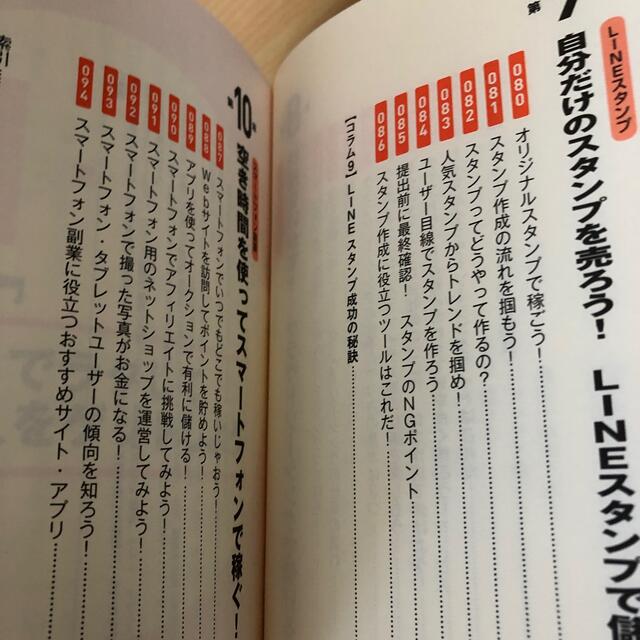 LINEスタンプ
第
自分だけのスタンプを売ろう! LINEスタンプで
080 オリジナルスタンプで稼ごう!
081 スタンプ作成の流れを掴もう!
082 スタンプってどうやって作るの?
083 人気スタンプからトレンドを掴め!
084 ユーザー目線でスタンプを作ろう
085 提出前に最終確認! スタンプのNGポイント
086 スタンプ作成に役立つツールはこれだ!
【コラム9】LINEスタンプ成功の秘訣
第10章 空き時間を使ってスマートフォンで稼ぐ!
087 スマートフォンでいつでもどこでも稼いじゃおう!
088 Webサイトを訪問してポイントを貯めよう!
089 アプリを使ってオークションで有利に儲ける!
090 スマートフォンでアフィリエイトに挑戦してみよう!
091 スマートフォン用のネットショップを運営してみよう!
092 スマートフォンで撮った写真がお金になる!
093 スマートフォン・タブレットユーザーの傾向を知ろう!
094 スマートフォン副業に役立つおすすめサイト・アプリ
索引